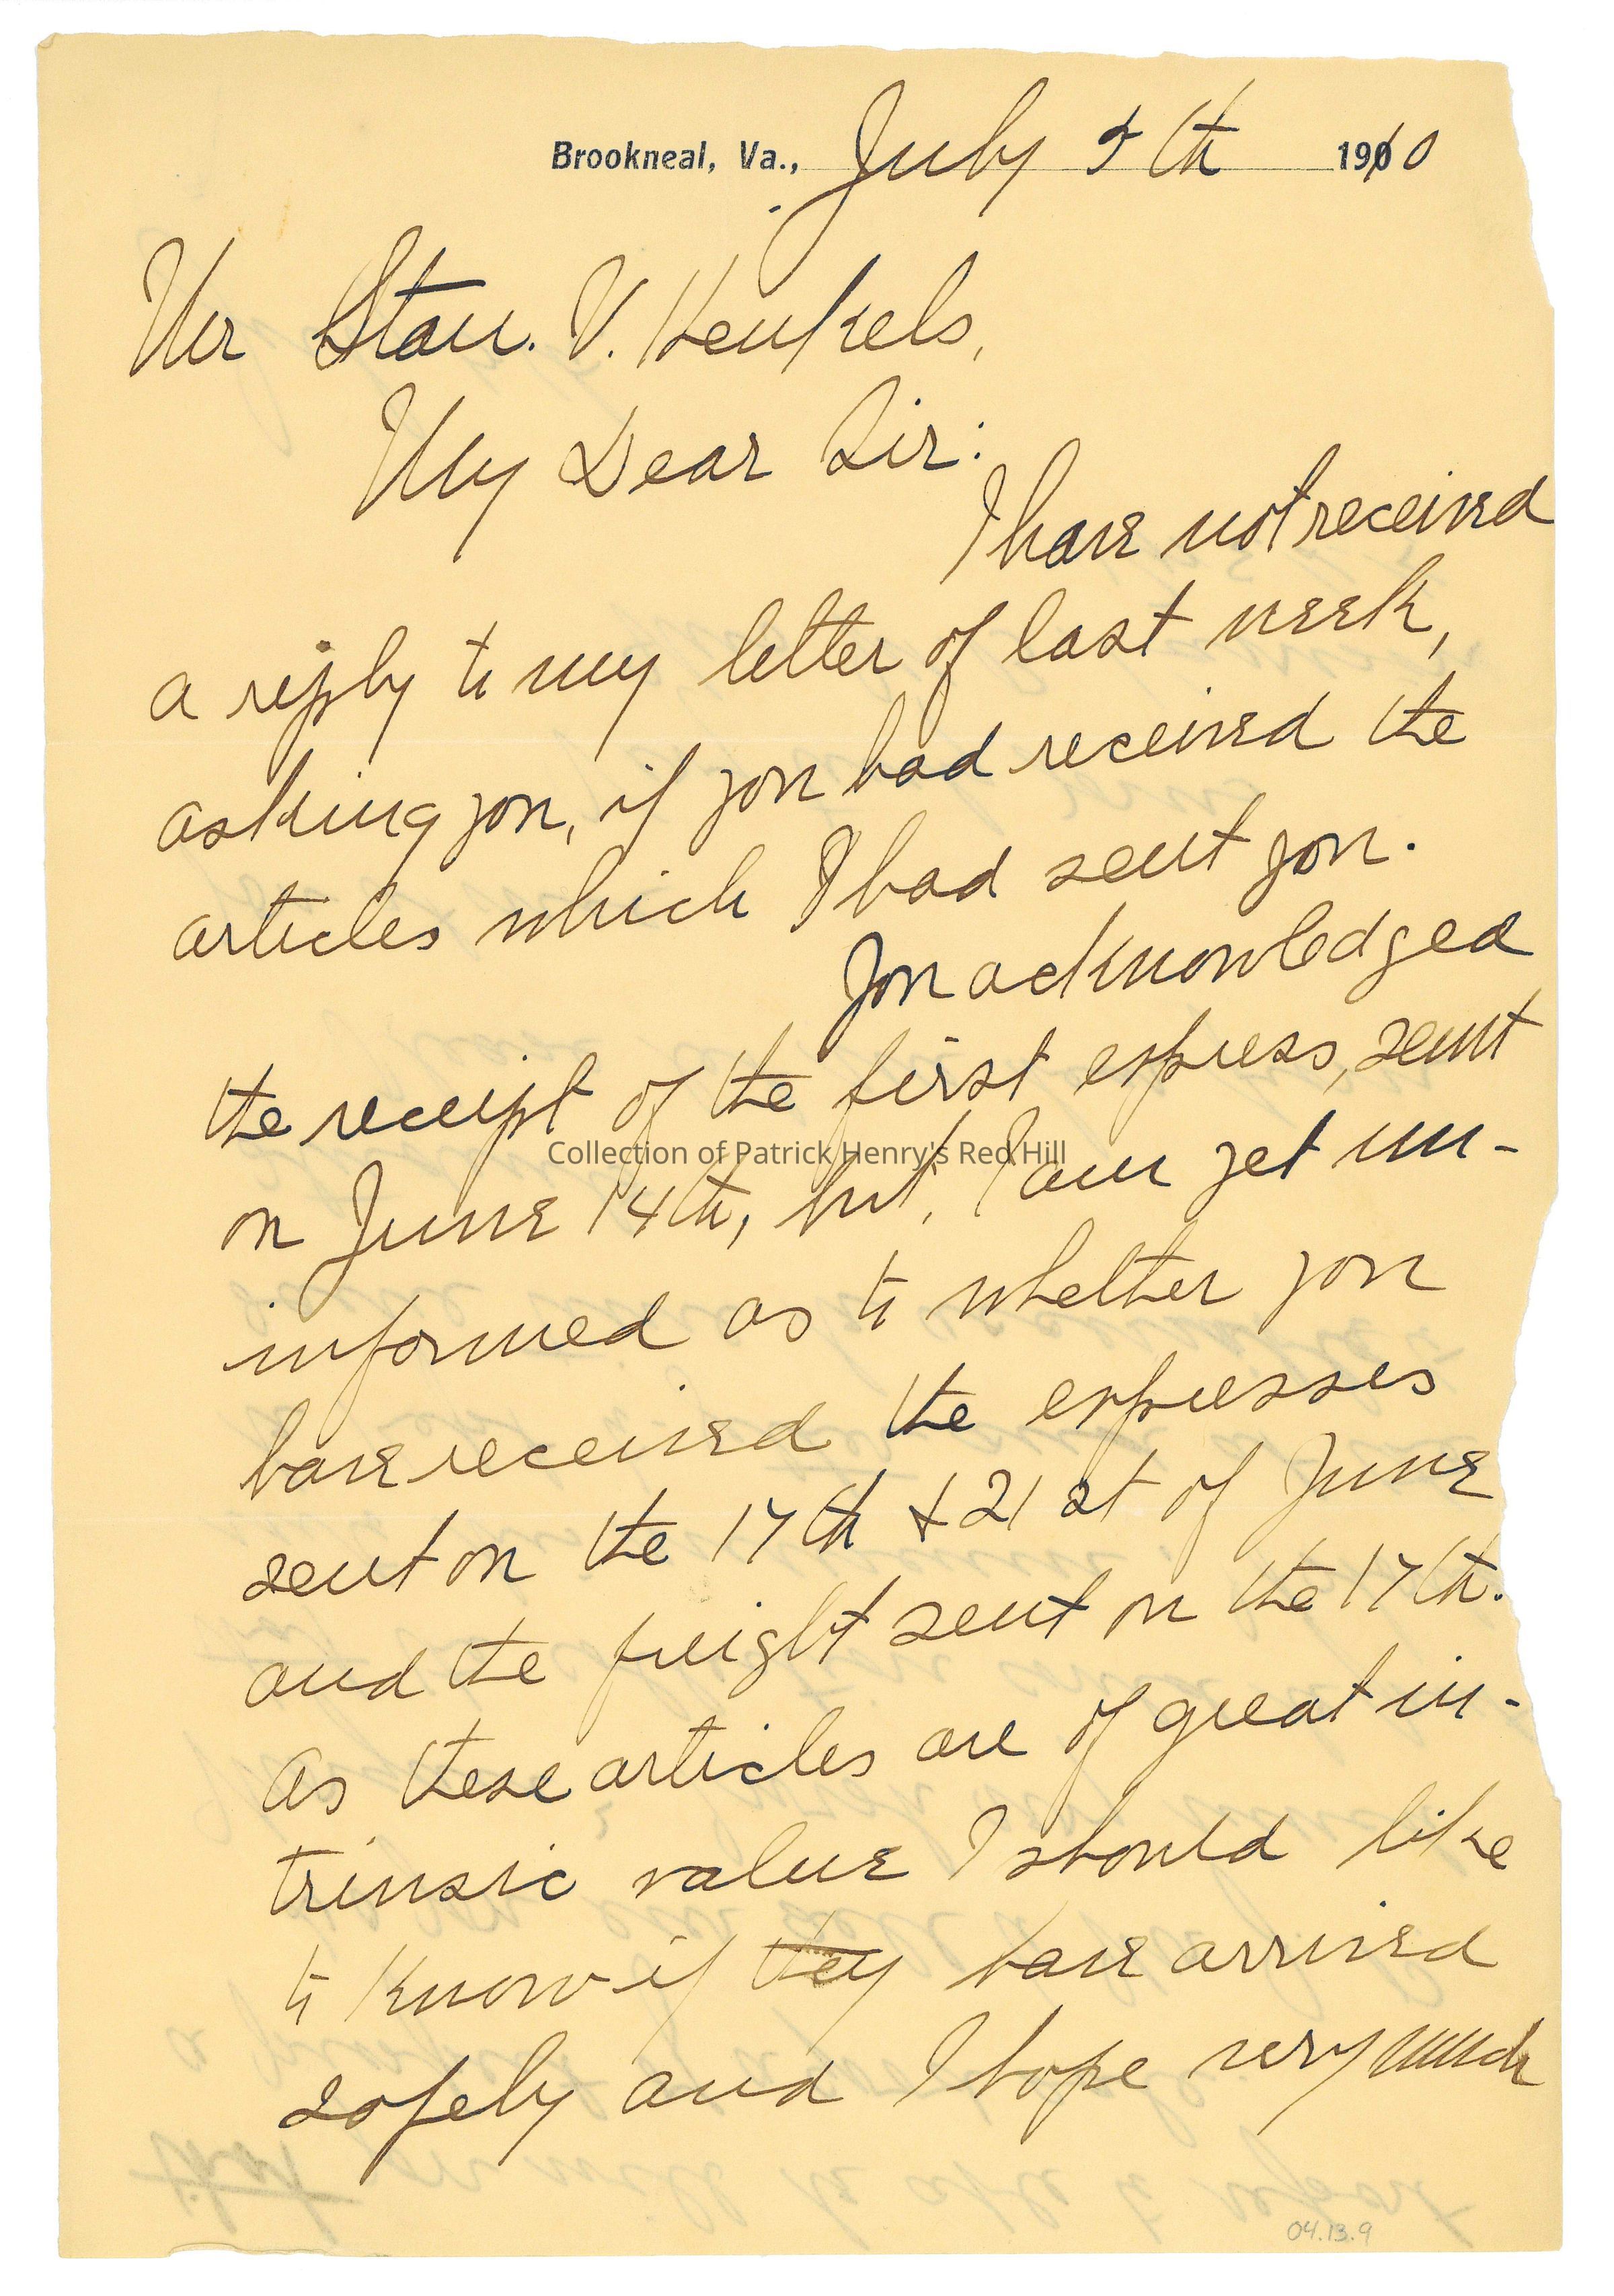 Brookneal, Va., July 5th 1910
Mr Stan. V. Henkels,
My Dear Sir:
I have not received
a reply to my letter of last week,
asking you, if you had received the
articles which I had sent you.
You acknowledged
the receipt of the first express, sent
Collection of Patrick Henry's Red Hill
on June 14th, but, I am yet un-
informed as to whether you
have received the expresses
sent on the 17th & 21st of June
and the freight sent on the 17th.
As these articles are of great in-
trinsic value I should like
to know if they have arrived
safely and I hope very much
04.13.9